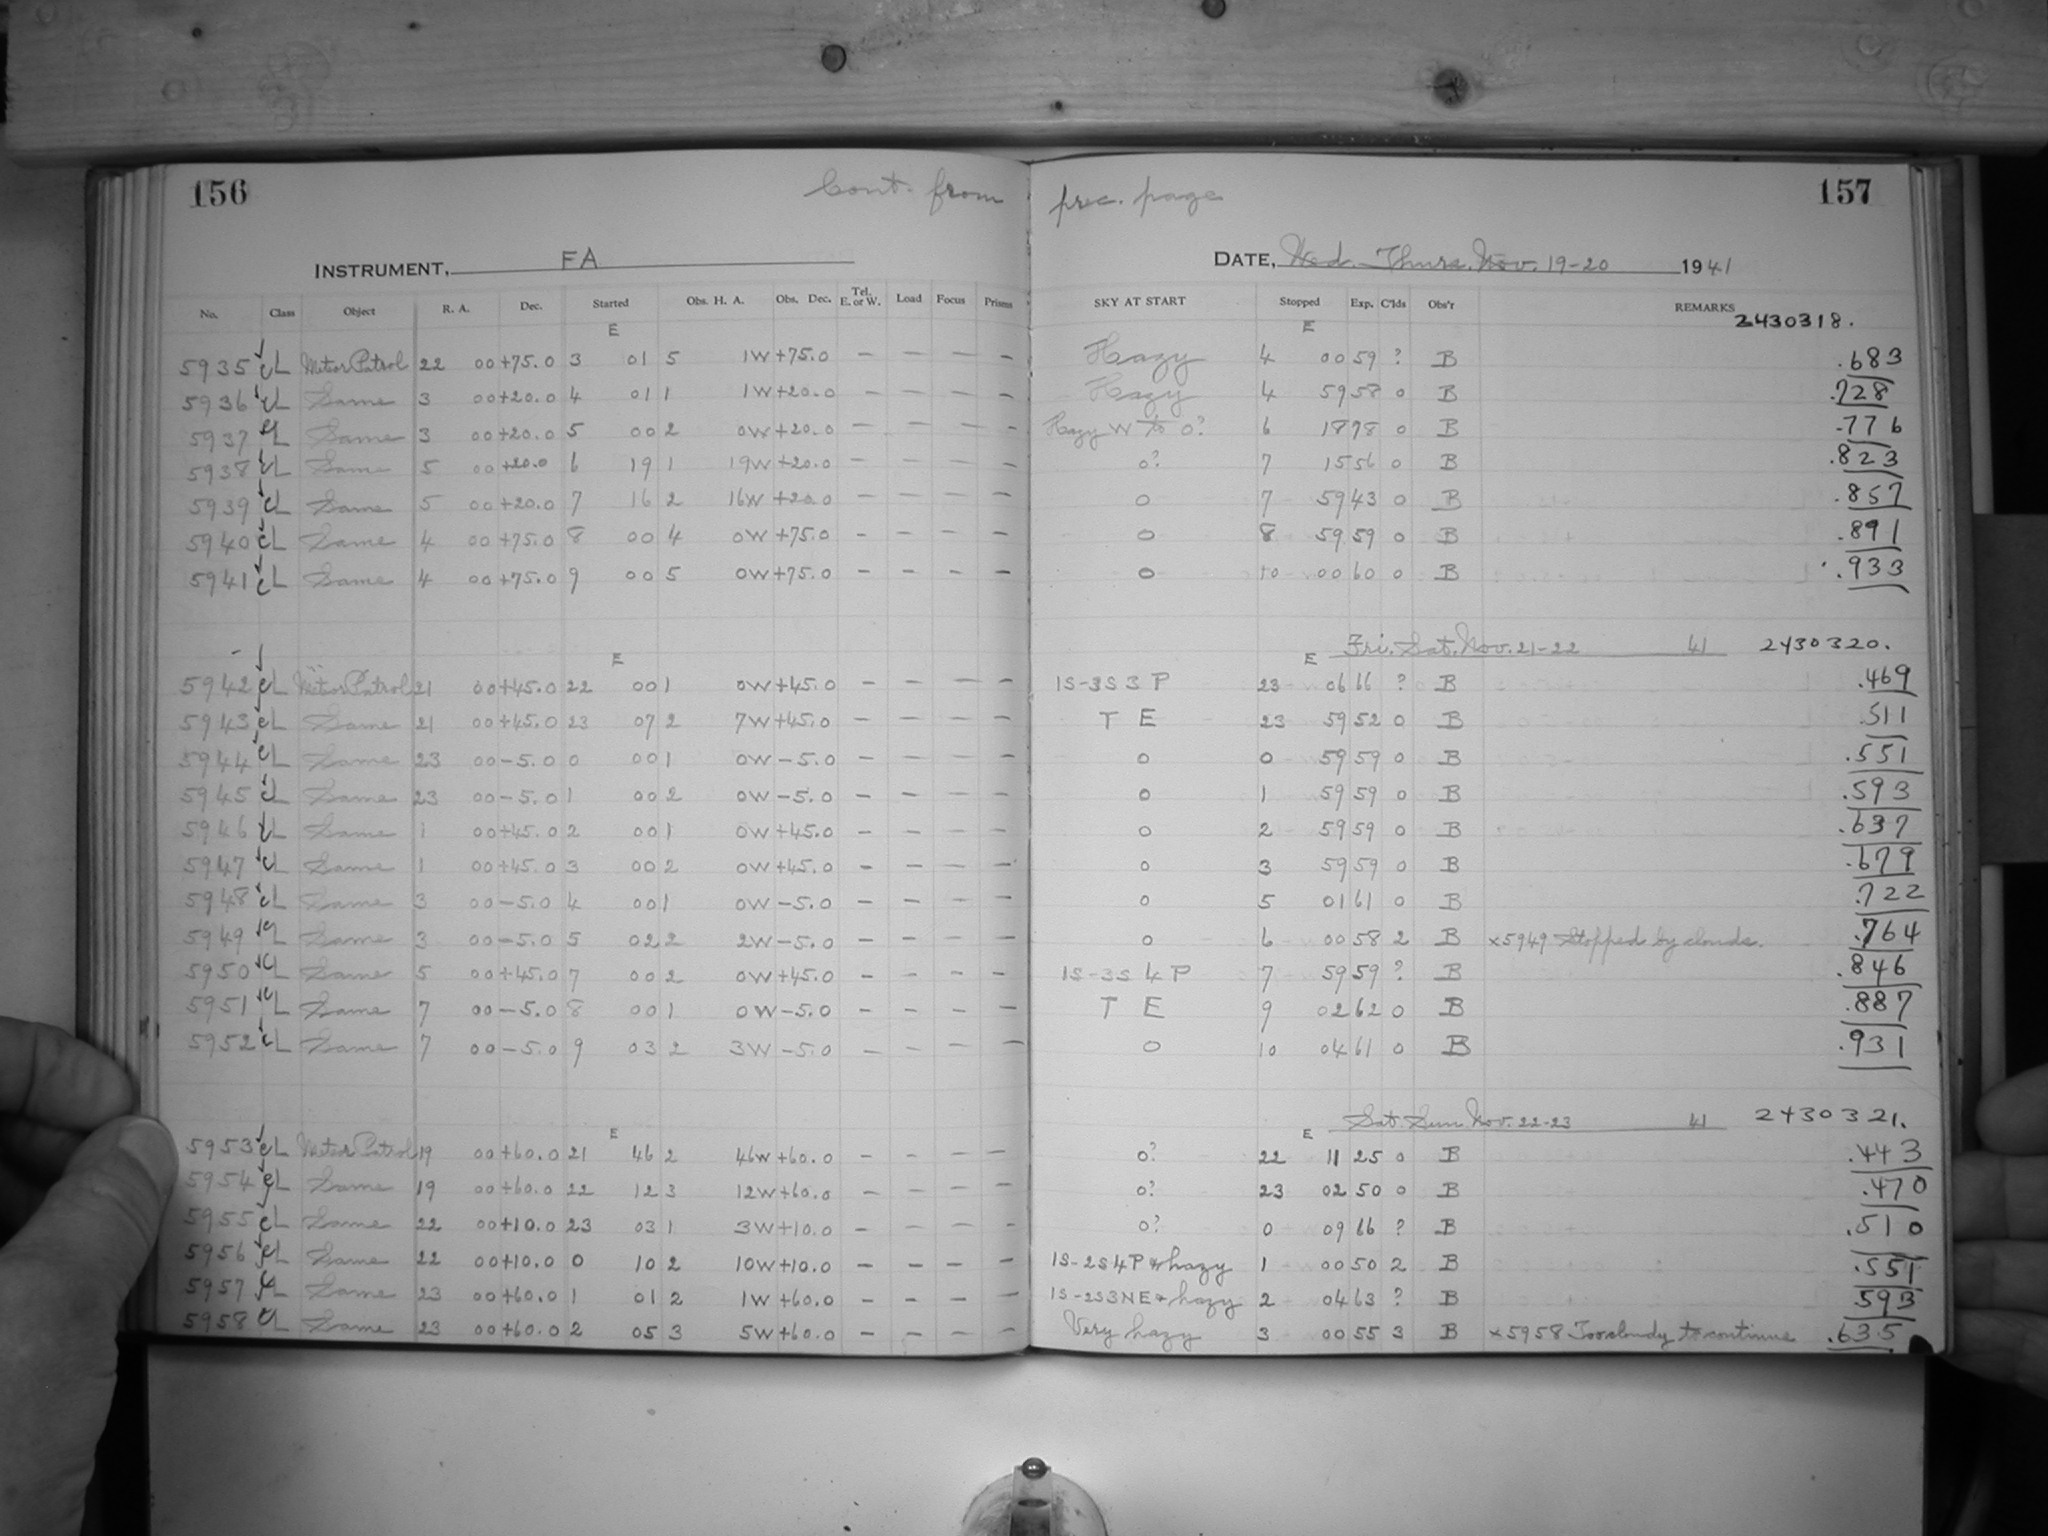 156 Cont. from prec. page 157
INSTRUMENT, FA DATE, Wed. Thurs. Nov. 19-20 1941
No. Class Object R. A. Dec. Started Obs. H. A. Obs. Dec. Tel. E. or W. Load Focus Prisms SKY AT START Stopped Exp. C'lds Obs'r REMARKS
E E 2430318.
5935 cL Meteor Patrol 22 00 +75.0 3 01 5 1W +75.0 — — — — Hazy 4 00 59 ? B .683
5936 cL Same 3 00 +20.0 4 01 1 1W +20.0 — — — — Hazy 4 59 58 0 B .728
5937 cL Same 3 00 +20.0 5 00 2 0W +20.0 — — — — Hazy W to 0? 6 18 78 0 B .776
5938 cL Same 5 00 +20.0 6 19 1 19W +20.0 — — — — 0? 7 15 56 0 B .823
5939 cL Same 5 00 +20.0 7 16 2 16W +20.0 — — — — 0 7 59 43 0 B .857
5940 cL Same 4 00 +75.0 8 00 4 0W +75.0 — — — — 0 8 59 59 0 B .891
5941 cL Same 4 00 +75.0 9 00 5 0W +75.0 — — — — 0 10 00 60 0 B .933
E E Fri. Sat. Nov. 21-22 41 2430320.
5942 cL Meteor Patrol 21 00 +45.0 22 00 1 0W +45.0 — — — — 1S-3S 3 P 23 06 66 ? B .469
5943 cL Same 21 00 +45.0 23 07 2 7W +45.0 — — — — T E 23 59 52 0 B .511
5944 cL Same 23 00 -5.0 0 00 1 0W -5.0 — — — — 0 0 59 59 0 B .551
5945 cL Same 23 00 -5.0 1 00 2 0W -5.0 — — — — 0 1 59 59 0 B .593
5946 cL Same 1 00 +45.0 2 00 1 0W +45.0 — — — — 0 2 59 59 0 B .637
5947 cL Same 1 00 +45.0 3 00 2 0W +45.0 — — — — 0 3 59 59 0 B .679
5948 cL Same 3 00 -5.0 4 00 1 0W -5.0 — — — — 0 5 01 61 0 B .722
5949 cL Same 3 00 -5.0 5 02 2 2W -5.0 — — — — 0 6 00 58 2 B x5949 Stopped by clouds. .764
5950 cL Same 5 00 +45.0 7 00 2 0W +45.0 — — — — 1S-3S 4 P 7 59 59 ? B .846
5951 cL Same 7 00 -5.0 8 00 1 0W -5.0 — — — — T E 9 02 62 0 B .887
5952 cL Same 7 00 -5.0 9 03 2 3W -5.0 — — — — 0 10 04 61 0 B .931
E E Sat. Sun. Nov. 22-23 41 2430321.
5953 cL Meteor Patrol 19 00 +60.0 21 46 2 46W +60.0 — — — — 0? 22 11 25 0 B .443
5954 cL Same 19 00 +60.0 22 12 3 12W +60.0 — — — — 0? 23 02 50 0 B .470
5955 cL Same 22 00 +10.0 23 03 1 3W +10.0 — — — — 0? 0 09 66 ? B .510
5956 cL Same 22 00 +10.0 0 10 2 10W +10.0 — — — — 1S-2S 4 P & hazy 1 00 50 2 B .551
5957 cL Same 23 00 +60.0 1 01 2 1W +60.0 — — — — 1S-2S3NE & hazy 2 04 63 ? B .593
5958 cL Same 23 00 +60.0 2 05 3 5W +60.0 — — — — Very hazy 3 00 55 3 B x5958 Too cloudy to continue .635